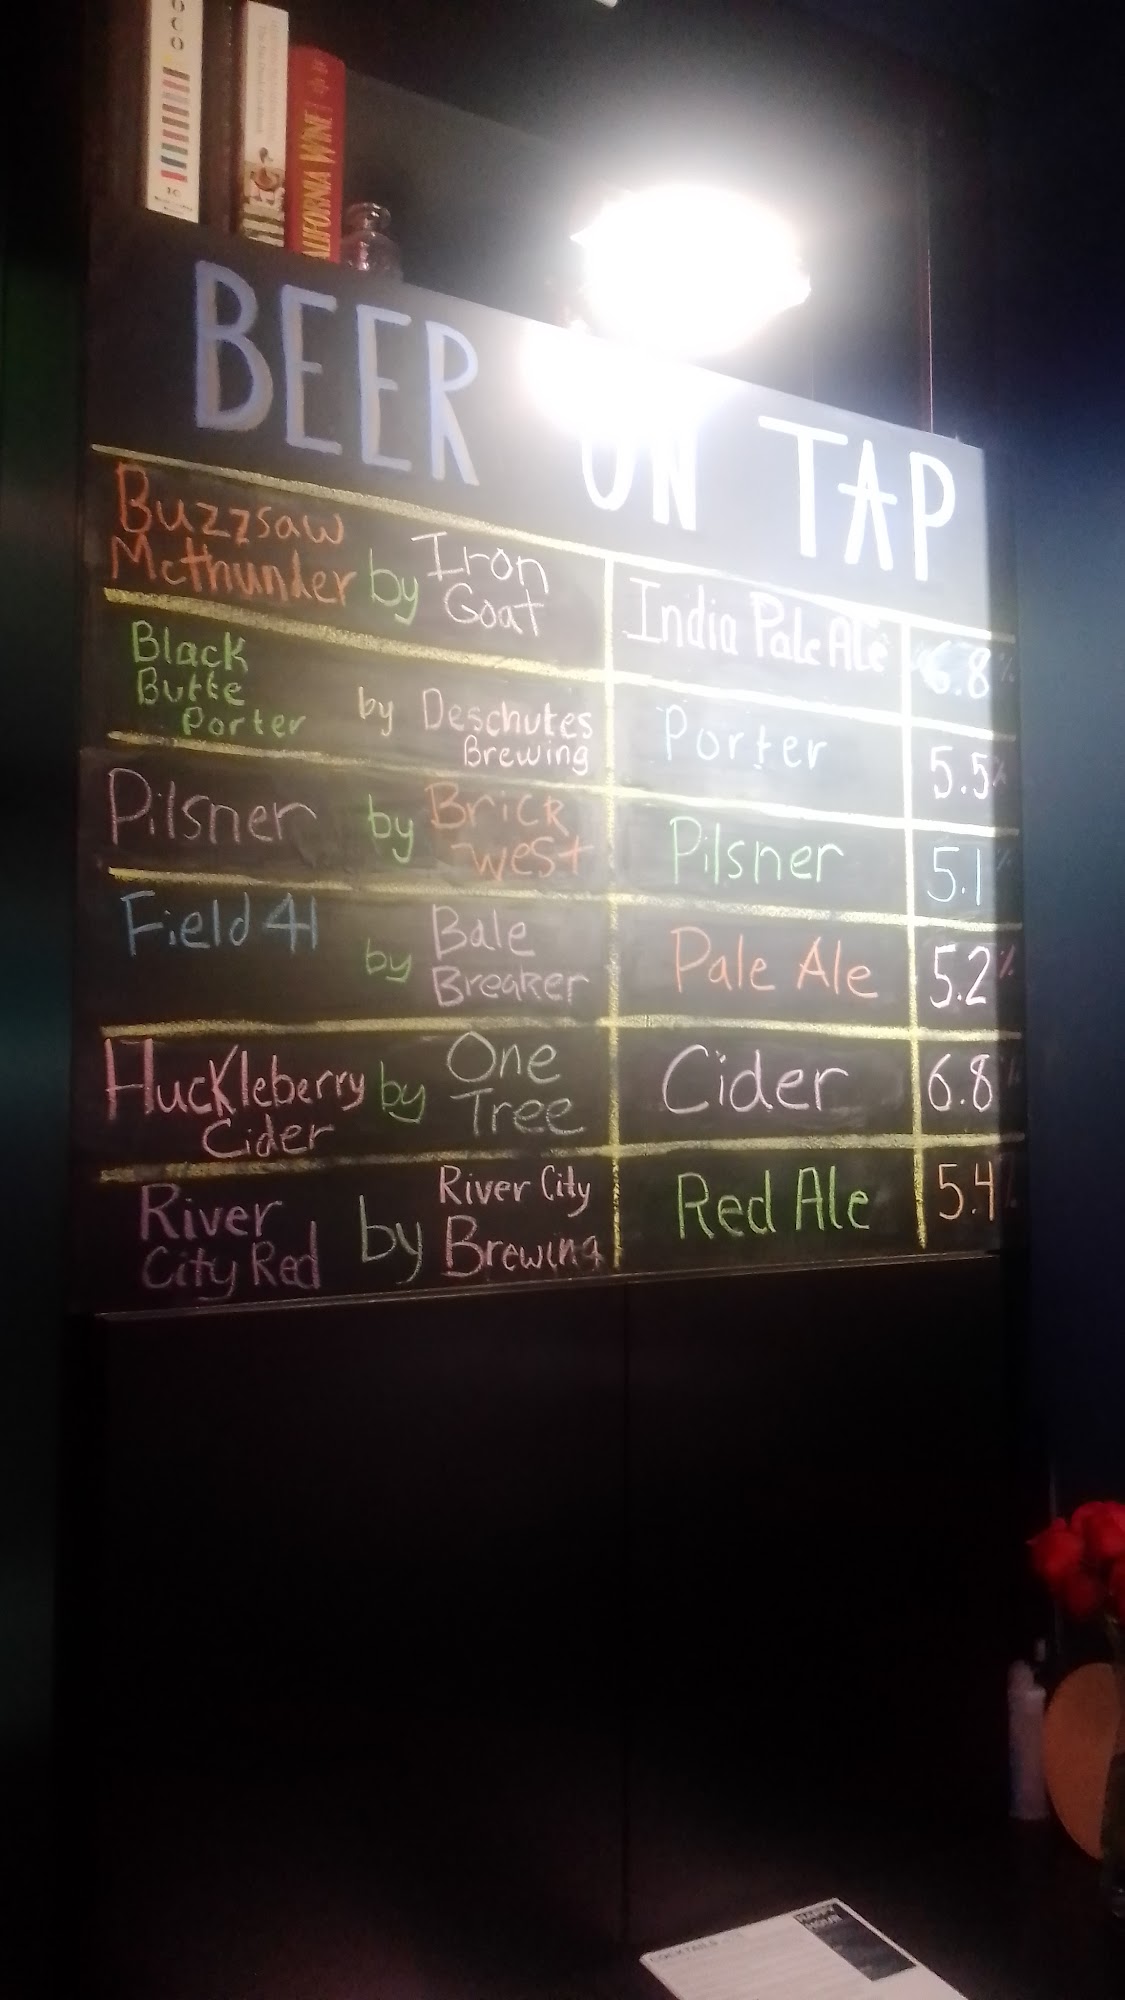 OCO
CALIFORNIA WINE
BEER ON TAP
Buzzsaw
McThunder by Iron
Goat
India Pale Ale 6.8%
Black
Butte
Porter
by Deschutes
Brewing
Porter 5.5%
Pilsner by Brick
West
Pilsner 5.1%
Field 41 by Bale
Breaker
Pale Ale 5.2%
Huckleberry
Cider
by One
Tree
Cider 6.8%
River
City Red
by River City
Brewing
Red Ale 5.4%
HAPPY
HOUR
COCKTAILS